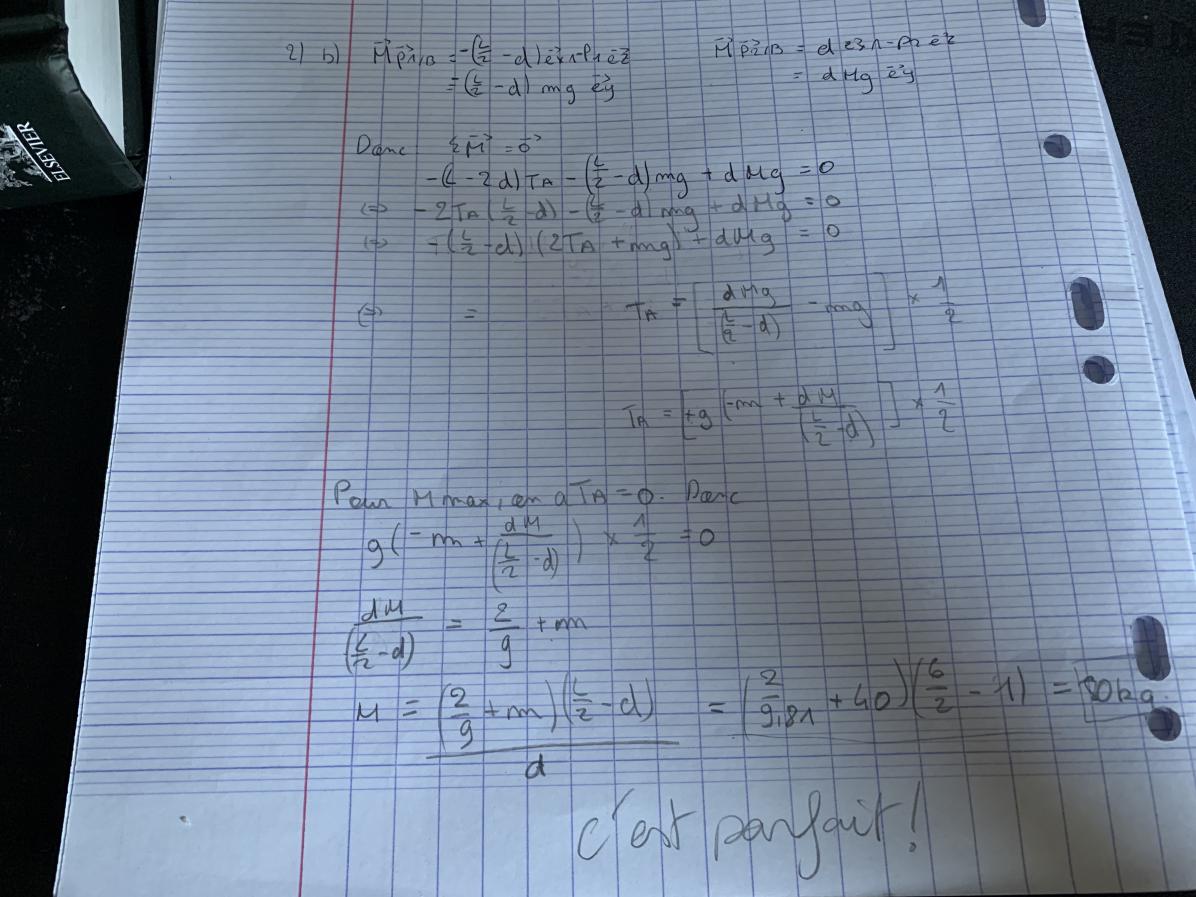 2) b) M⃗p1/B = -(L/2 - d) e⃗x ∧ -P1 e⃗z
= (L/2 - d) mg e⃗y
M⃗p2/B = d e⃗x ∧ -P2 e⃗z
= d Mg e⃗y
ELSEVIER
Donc ΣM⃗ = 0⃗
-(L - 2d) TA - (L/2 - d) mg + d Mg = 0
⇔ -2TA (L/2 - d) - (L/2 - d) mg + d Mg = 0
⇔ -(L/2 - d) (2TA + mg) + d Mg = 0
⇔ = TA = [ dMg / (L/2 - d) - mg ] × 1/2
TA = [+g (-m + dM / (L/2 - d) ] × 1/2
Pour M max, on a TA = 0. Donc
g (-m + dM / (L/2 - d) ) × 1/2 = 0
dM / (L/2 - d) = 2/g + m
M = (2/g + m) (L/2 - d) / d = (2/9,81 + 40) (6/2 - 1) = 80 kg.
C'est parfait !